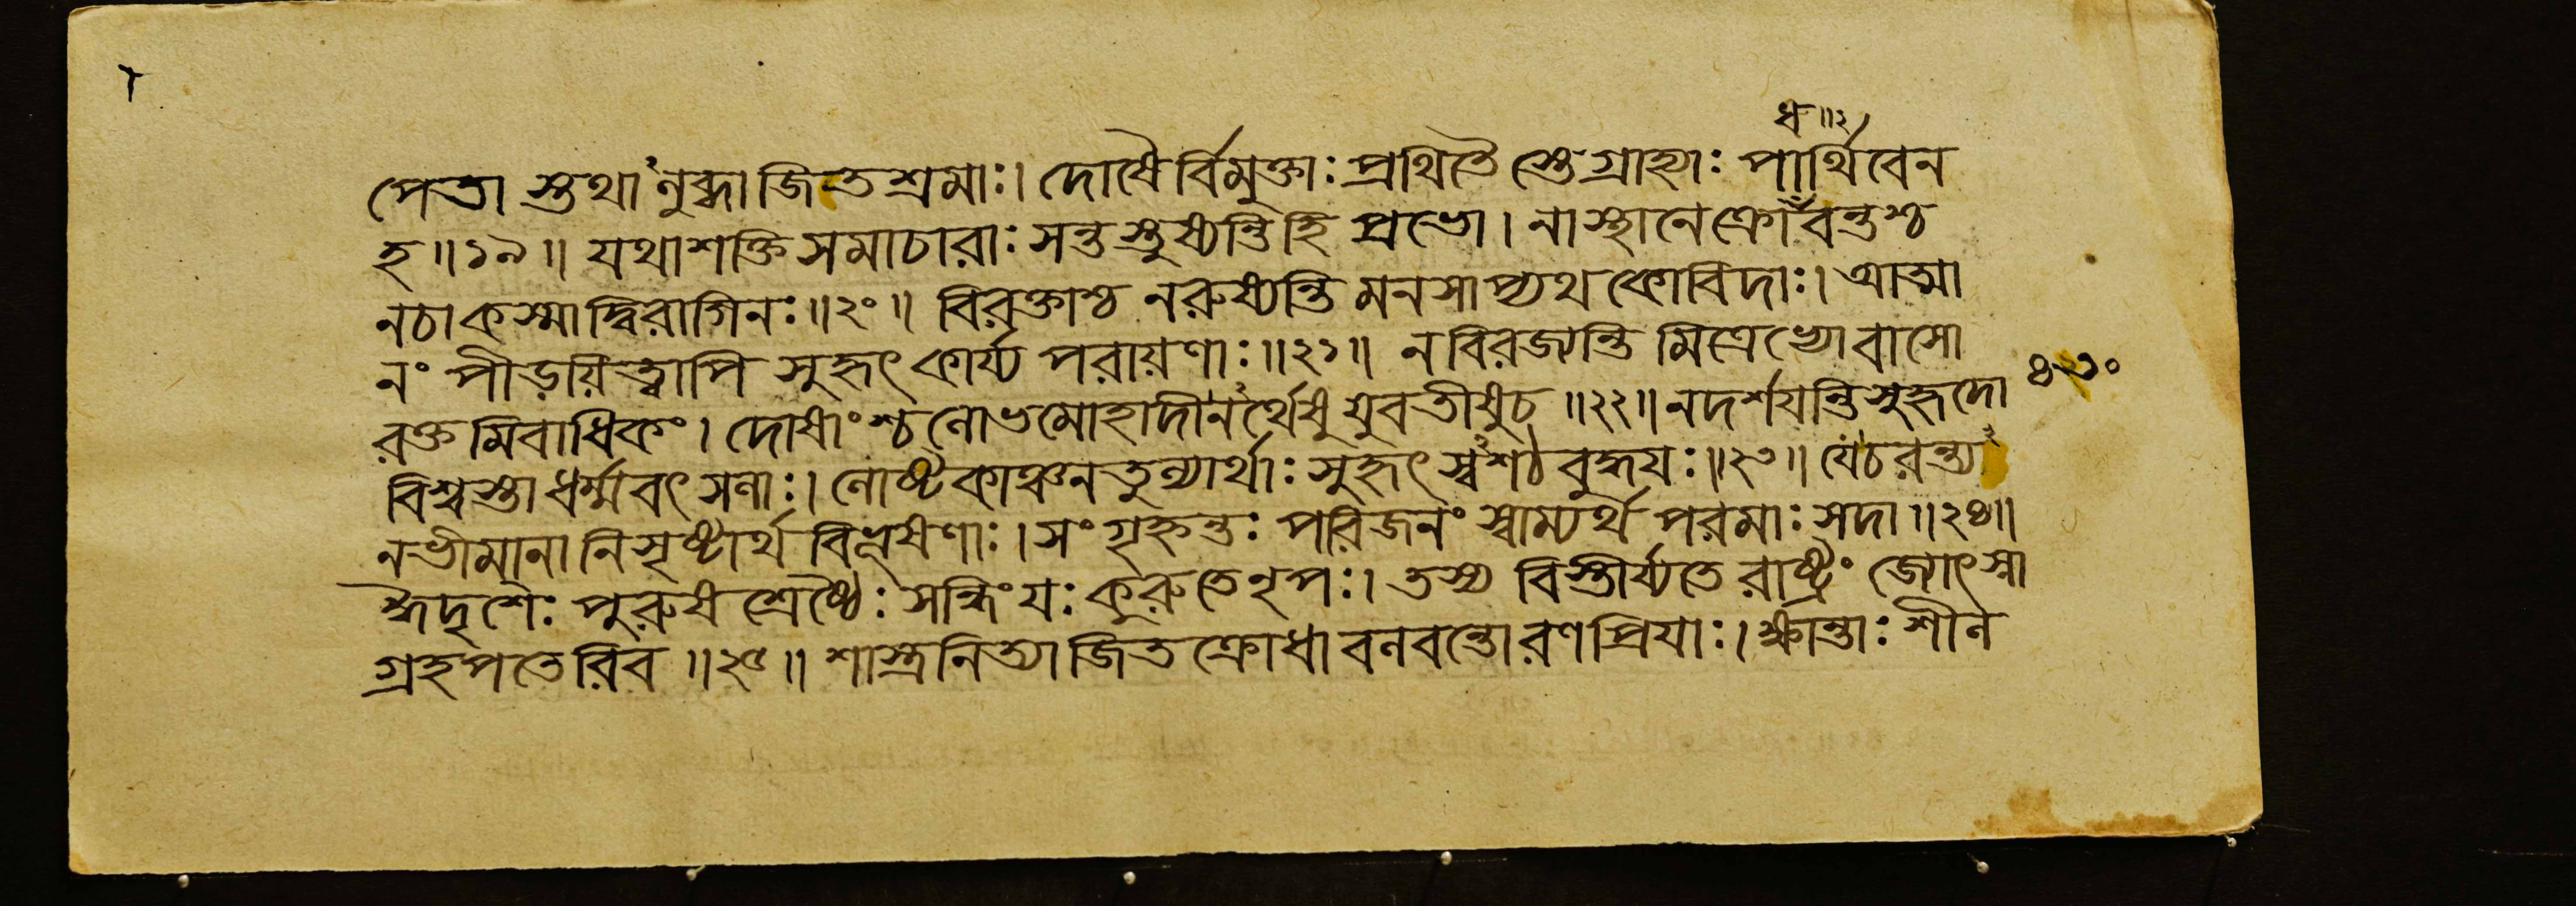 ধ॥২
পেতা স্তথাঽনুব্ধা জিতশ্রমাঃ। দোষৈর্বিমুক্তাঃ প্রথিতৈ স্তেগ্রাহ্যাঃ পার্থিবেন
হ॥১৯॥ যথাশক্তি সমাচারাঃ সন্তস্তুষ্যন্তিহি প্রভো। নাস্থানেক্রোঁবন্তশ্চ
নচাকস্মাদ্বিরাগিনঃ॥২০॥ বিরক্তাশ্চ নরুষ্যন্তি মনসাপ্যথকোবিদাঃ। আত্মা
নং পীড়য়িত্বাপি সুহৃৎ কার্য্য পরায়ণাঃ॥২১॥ নবিরজ্যন্তি মিত্রেভ্যোবাসো
রক্তমিবাধিকং। দোষাংশ্চলোভমোহাদীনঽর্থেষু যুবতীষুচ॥২২॥ নদর্শযন্তিসুহৃদো
বিশ্বস্তাধর্ম্মবৎসলাঃ। লোষ্টকাঞ্চনতুল্যার্থাঃ সুহৃৎস্বঽশঠবুদ্ধযঃ॥২৩॥ যেচরন্ত্যঽ
নভীমানানিসৃষ্টার্থ বিভূষণাঃ। সংগৃহ্নন্তঃ পরিজনং স্বাম্যর্থ পরমাঃ সদা॥২৪॥
হ্যৈদৃশেঃ পুরুষ শ্রেষ্ঠৈঃ সন্ধিং যঃ কুরুতেনৃপঃ। তস্য বিস্তীর্য্যতে রাষ্ট্রং জ্যোৎস্না
গ্রহপতেরিব॥২৫॥ শাস্ত্রনিত্যা জিতক্রোধা বলবন্তোরণপ্রিযাঃ। ক্ষান্তাঃ শীল